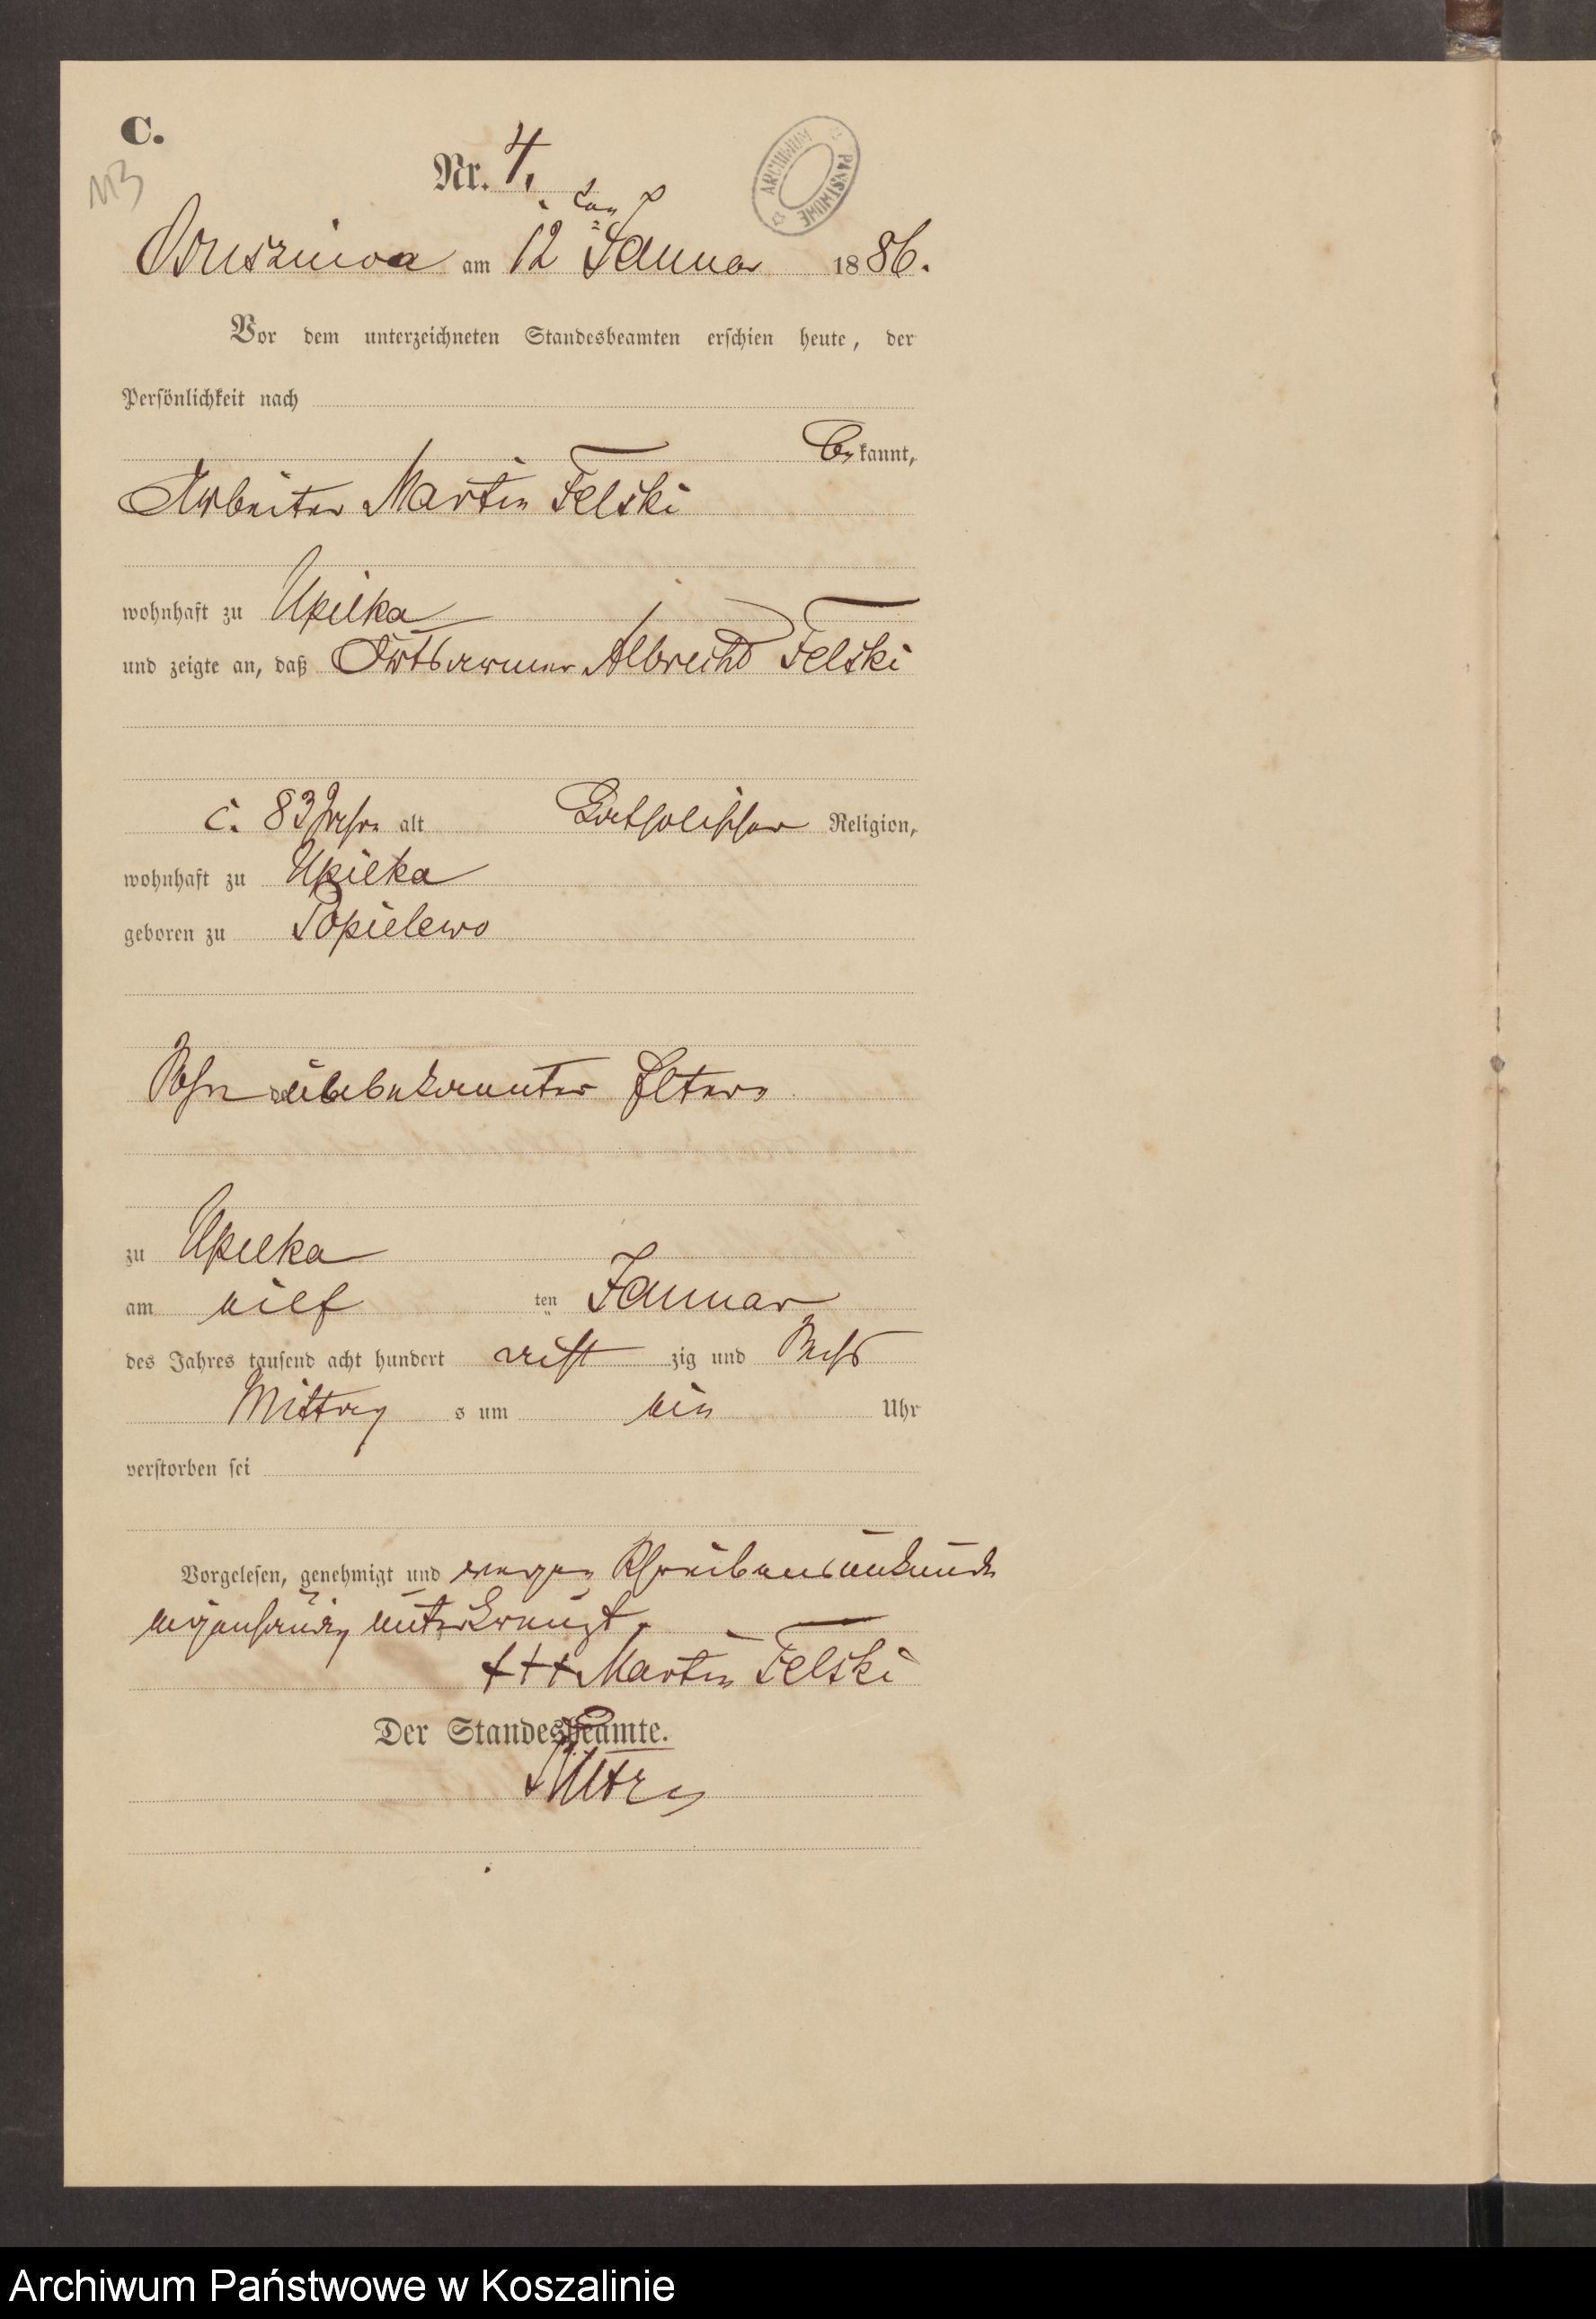 C.
113
Nr. 4.
ten
Bruszniwa am 12 Januar 1886.
ARCHIWUM PAŃSTWOWE
Vor dem unterzeichneten Standesbeamten erschien heute, der
Persönlichkeit nach
bekannt,
Arbeiter Martin Felski
wohnhaft zu Upilka
und zeigte an, daß Ortsarmer Albrecht Felski
c. 83 Jahr alt katholischer Religion,
wohnhaft zu Upilka
geboren zu Popielewo
Sohn unbekannter Eltern
zu Upilka
am eilf ten Januar
des Jahres tausend acht hundert acht zig und sechs
Mittag s um ein Uhr
verstorben sei
Vorgelesen, genehmigt und wegen Schreibensunkunde
eigenhändig unterkreuzt.
+++ Martin Felski
Der Standesbeamte.
Archiwum Państwowe w Koszalinie